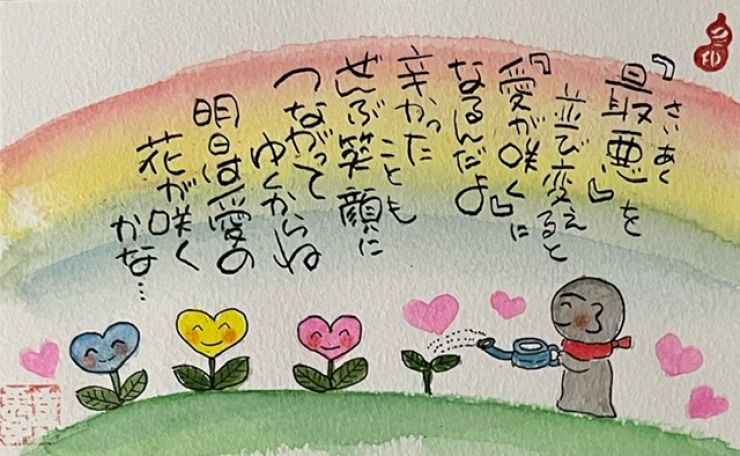 『最悪』を
さいあく
並び変えると
『愛が咲く』に
なるんだよ
辛かった
ことも
ぜんぶ笑顔に
つながって
ゆくからね
明日は愛の
花が咲く
かな…